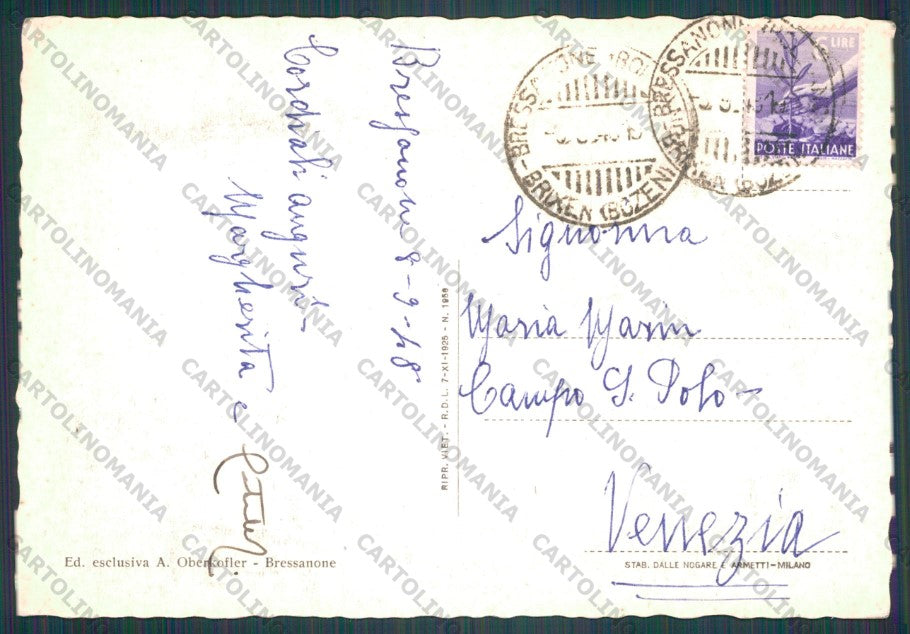 Bressanone 8-9-48
Cordiali auguri -
Margherita e
BRESSANONE (BOLZANO)
BRIXEN (BOZEN)
BRESSANONE
BRIXEN (BOZEN)
LIRE
POSTE ITALIANE
Signorina
Maria Marin
Campo S. Polo -
Venezia
RIPR. VIET. - R.D.L. 7-XI-1925 - N. 1950
Ed. esclusiva A. Oberkofler - Bressanone
STAB. DALLE NOGARE E ARMETTI - MILANO
CARTOLINOMANIA